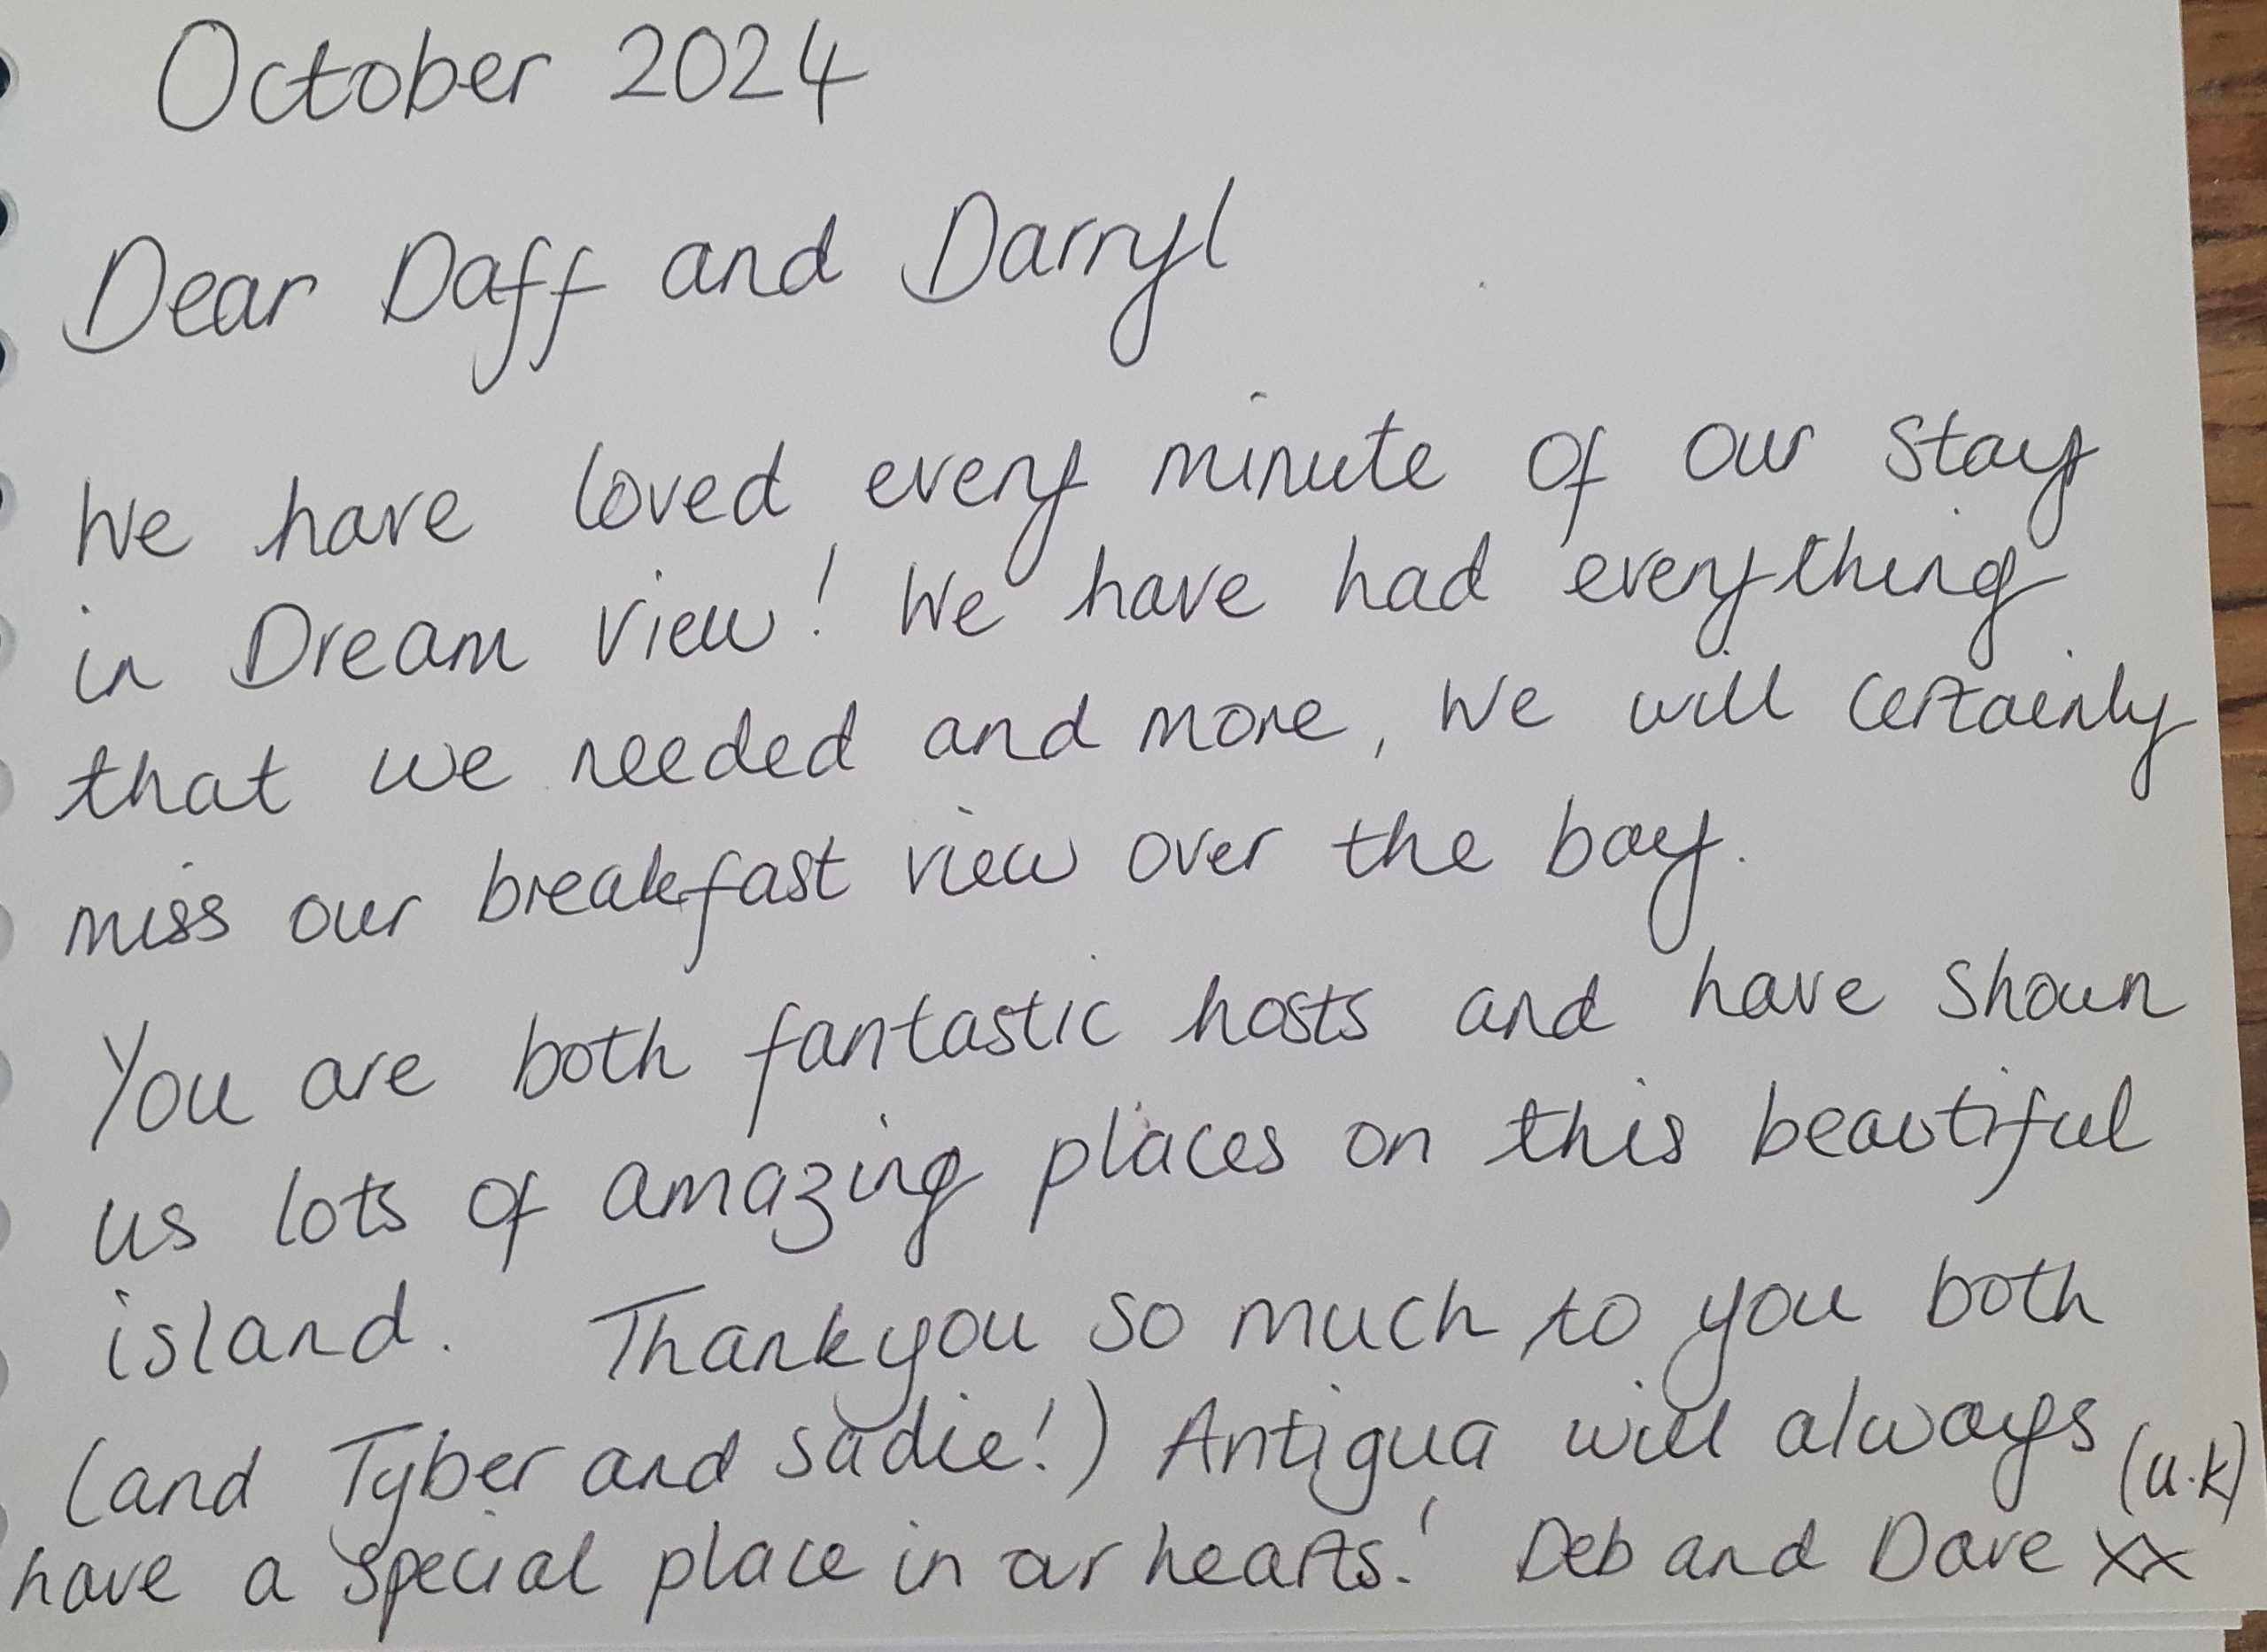 October 2024
Dear Daff and Darryl
We have loved every minute of our stay
in Dream View! We have had everything
that we needed and more, we will certainly
miss our breakfast view over the bay.
You are both fantastic hosts and have shown
us lots of amazing places on this beautiful
island. Thankyou so much to you both
(and Tyber and Sadie!) Antigua will always
have a special place in our hearts! Deb and Dave xx (u.k)